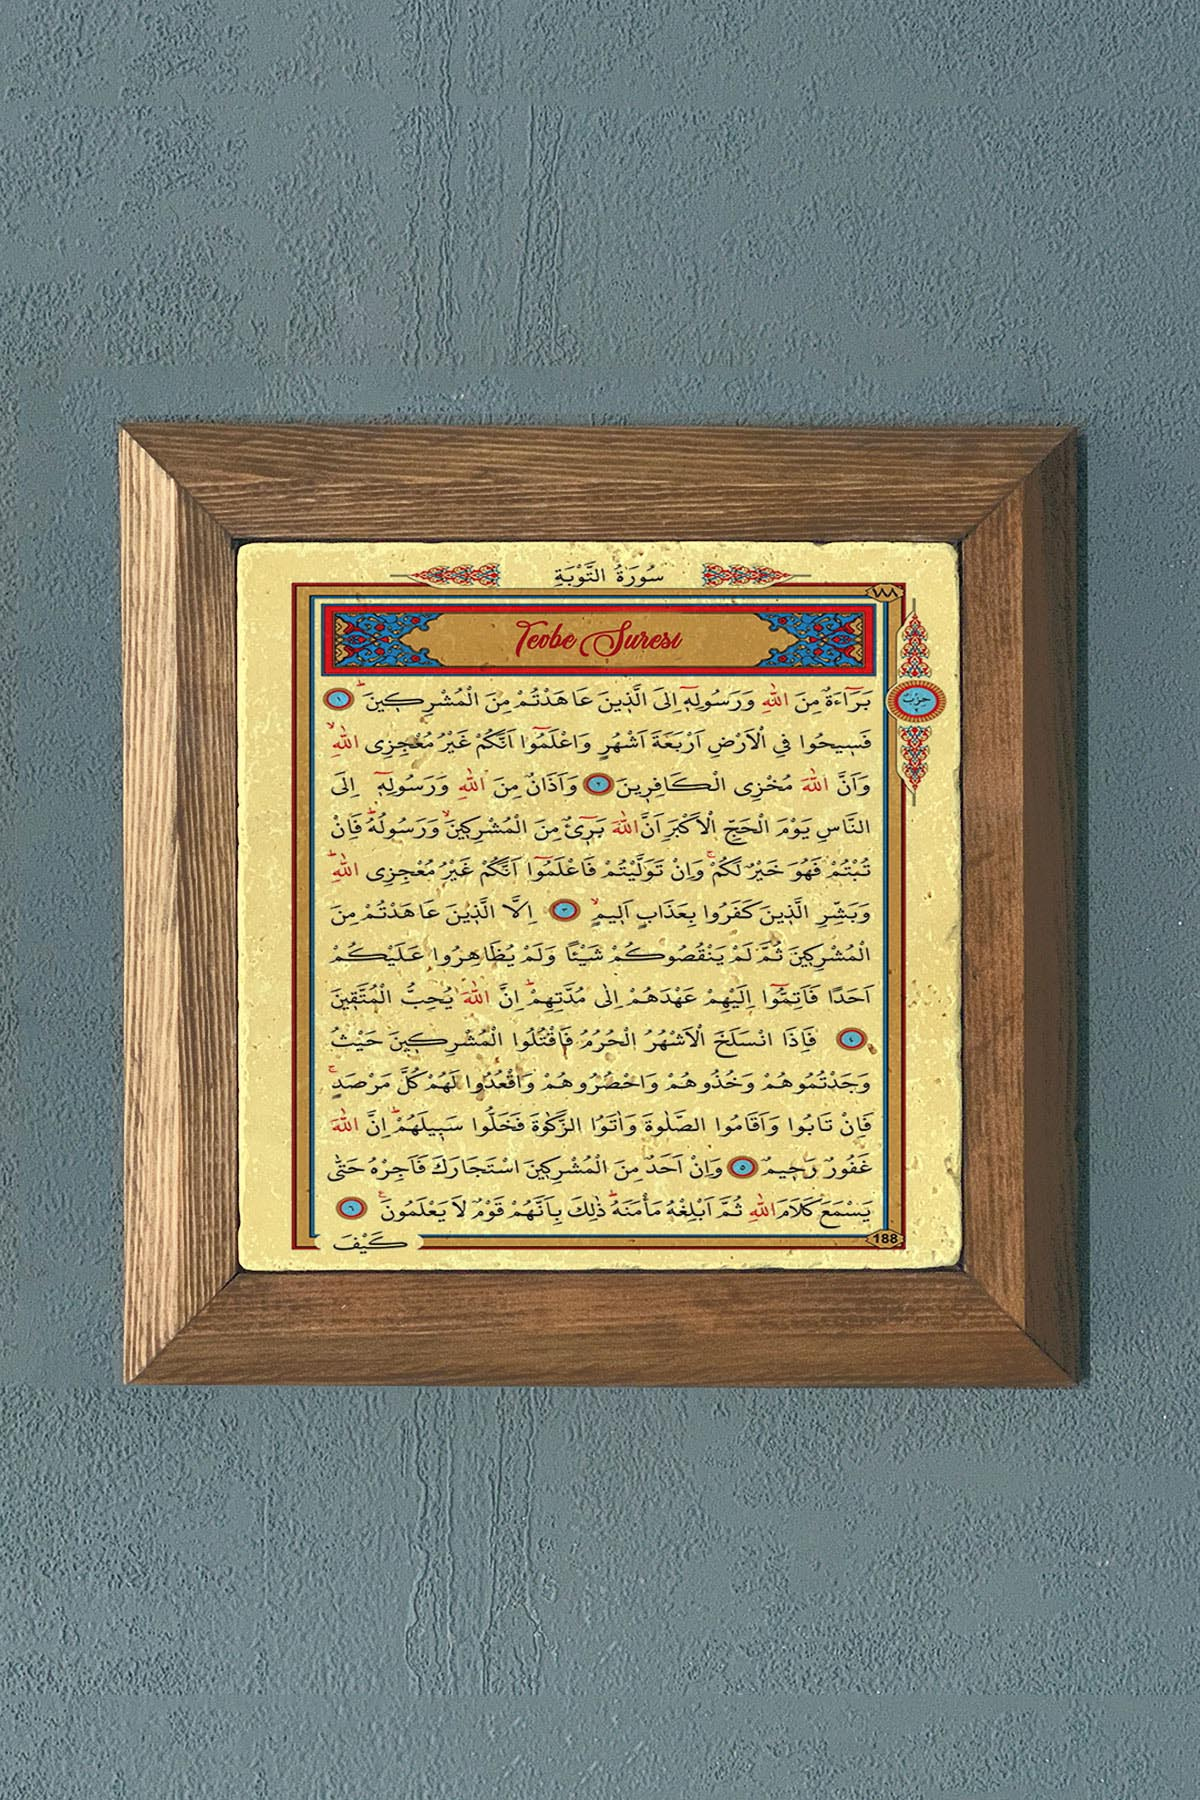 سُورَةُ التَّوْبَةِ
١٨٨
Tevbe Suresi
حزب
٢
بَرَٓاءَةٌ مِنَ اللّٰهِ وَرَسُولِه۪ٓ اِلَى الَّذ۪ينَ عَاهَدْتُمْ مِنَ الْمُشْرِك۪ينَۜ ١
فَس۪يحُوا فِي الْاَرْضِ اَرْبَعَةَ اَشْهُرٍ وَاعْلَمُٓوا اَنَّكُمْ غَيْرُ مُعْجِزِي اللّٰهِۙ
وَاَنَّ اللّٰهَ مُخْزِي الْكَافِر۪ينَ ٢ وَاَذَانٌ مِنَ اللّٰهِ وَرَسُولِه۪ٓ اِلَى
النَّاسِ يَوْمَ الْحَجِّ الْاَكْبَرِ اَنَّ اللّٰهَ بَر۪ٓيءٌ مِنَ الْمُشْرِك۪ينَۙ وَرَسُولُهُۜ فَاِنْ
تُبْتُمْ فَهُوَ خَيْرٌ لَكُمْۚ وَاِنْ تَوَلَّيْتُمْ فَاعْلَمُٓوا اَنَّكُمْ غَيْرُ مُعْجِزِي اللّٰهِۜ
وَبَشِّرِ الَّذ۪ينَ كَفَرُوا بِعَذَابٍ اَل۪يمٍۙ ٣ اِلَّا الَّذ۪ينَ عَاهَدْتُمْ مِنَ
الْمُشْرِك۪ينَ ثُمَّ لَمْ يَنْقُصُوكُمْ شَيْـًٔا وَلَمْ يُظَاهِرُوا عَلَيْكُمْ
اَحَدًا فَاَتِمُّٓوا اِلَيْهِمْ عَهْدَهُمْ اِلٰى مُدَّتِهِمْۜ اِنَّ اللّٰهَ يُحِبُّ الْمُتَّق۪ينَ
٤ فَاِذَا انْسَلَخَ الْاَشْهُرُ الْحُرُمُ فَاقْتُلُوا الْمُشْرِك۪ينَ حَيْثُ
وَجَدْتُمُوهُمْ وَخُذُوهُمْ وَاحْصُرُوهُمْ وَاقْعُدُوا لَهُمْ كُلَّ مَرْصَدٍۚ
فَاِنْ تَابُوا وَاَقَامُوا الصَّلٰوةَ وَاٰتَوُا الزَّكٰوةَ فَخَلُّوا سَب۪يلَهُمْۜ اِنَّ اللّٰهَ
غَفُورٌ رَح۪يمٌ ٥ وَاِنْ اَحَدٌ مِنَ الْمُشْرِك۪ينَ اسْتَجَارَكَ فَاَجِرْهُ حَتّٰى
يَسْمَعَ كَلَامَ اللّٰهِ ثُمَّ اَبْلِغْهُ مَأْمَنَهُۜ ذٰلِكَ بِاَنَّهُمْ قَوْمٌ لَا يَعْلَمُونَ۟ ٦
كَيْفَ
188